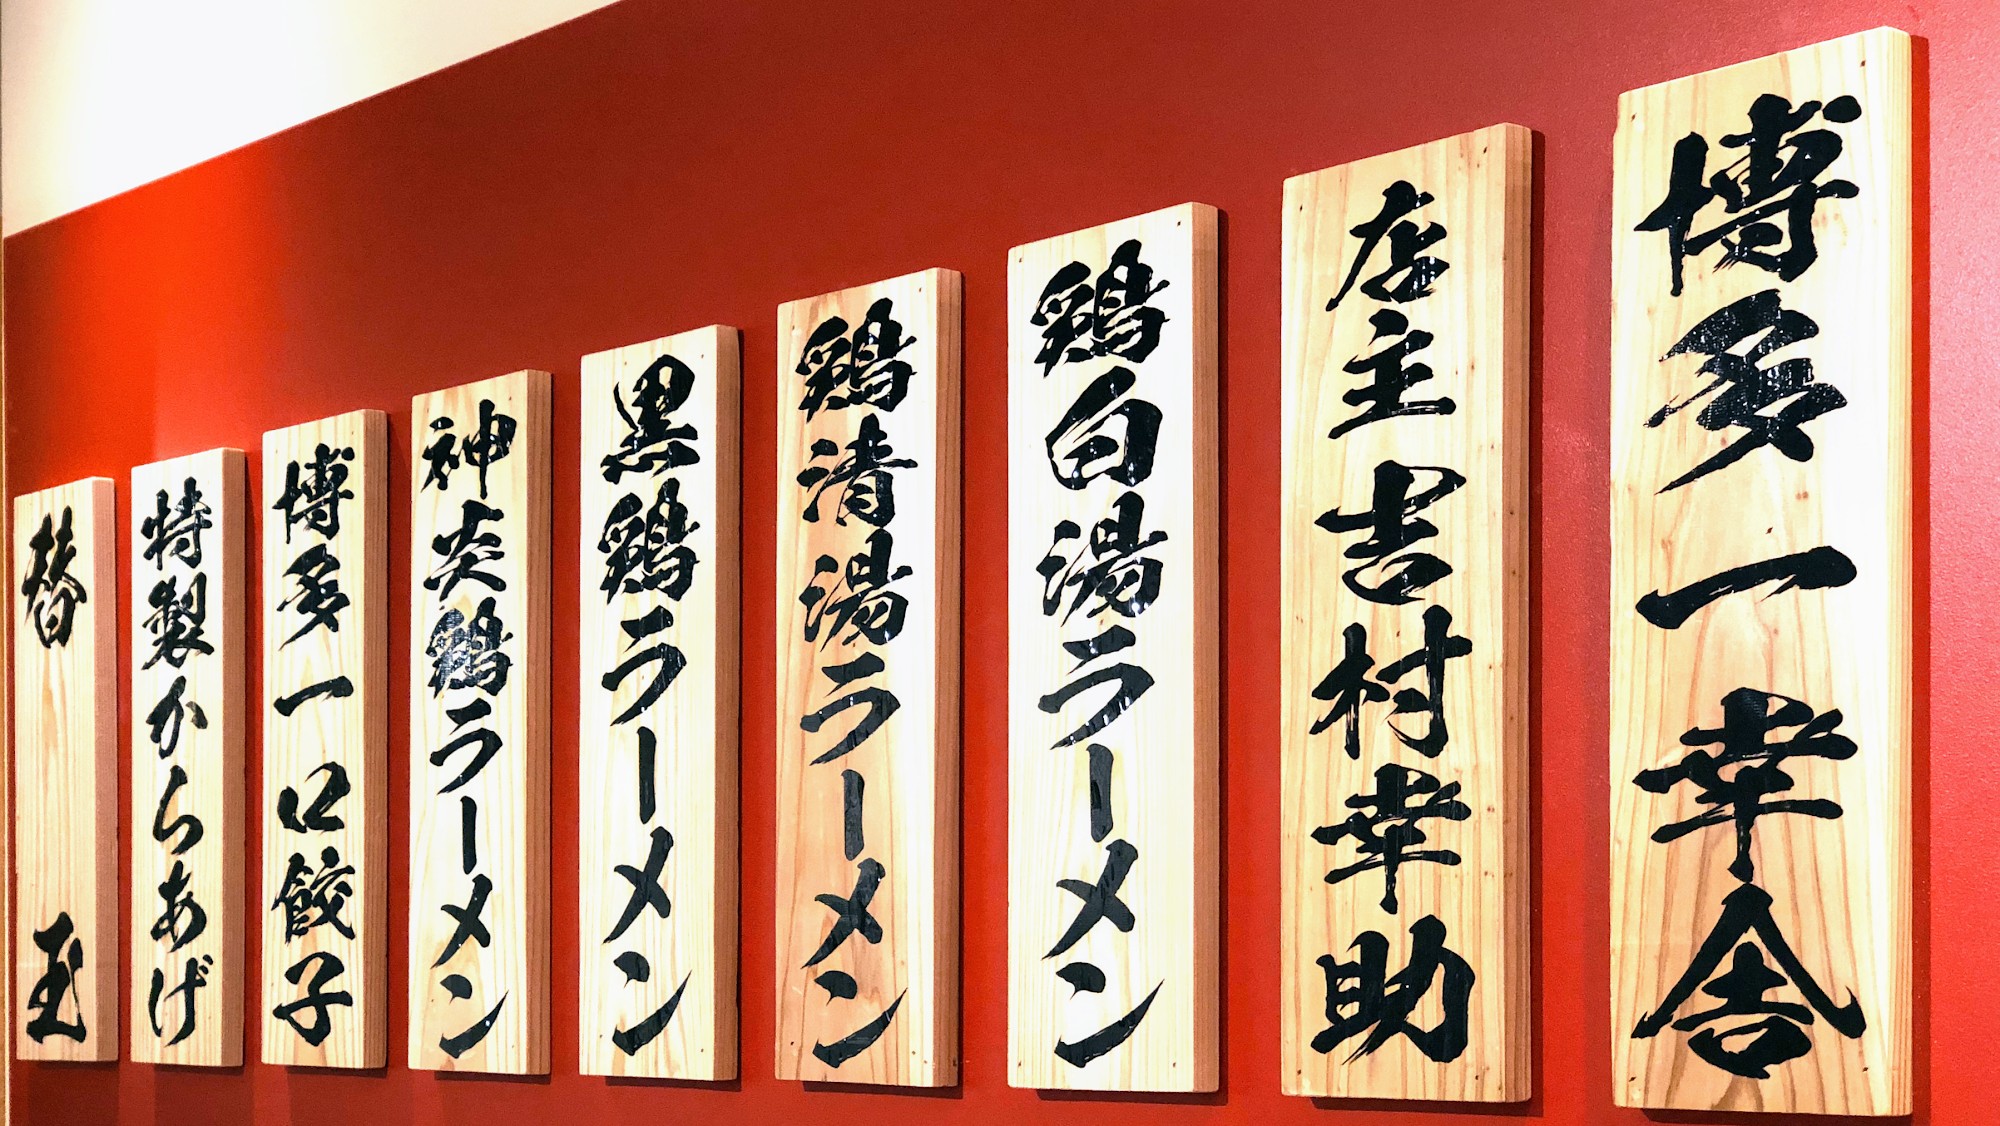 博多一幸舎
店主吉村幸助
鶏白湯ラーメン
鶏清湯ラーメン
黒鶏ラーメン
神炎鶏ラーメン
博多一口餃子
特製からあげ
替玉